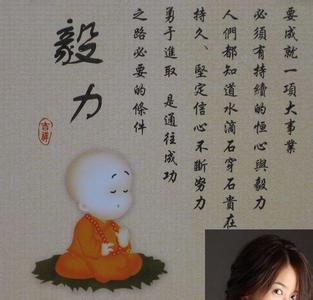 毅力
吉祥
要成就一項大事業
必須有持續的恒心與毅力
人們都知道水滴石穿石貴在
持久、堅定信心不斷努力
勇于進取 是通往成功
之路必要的條件